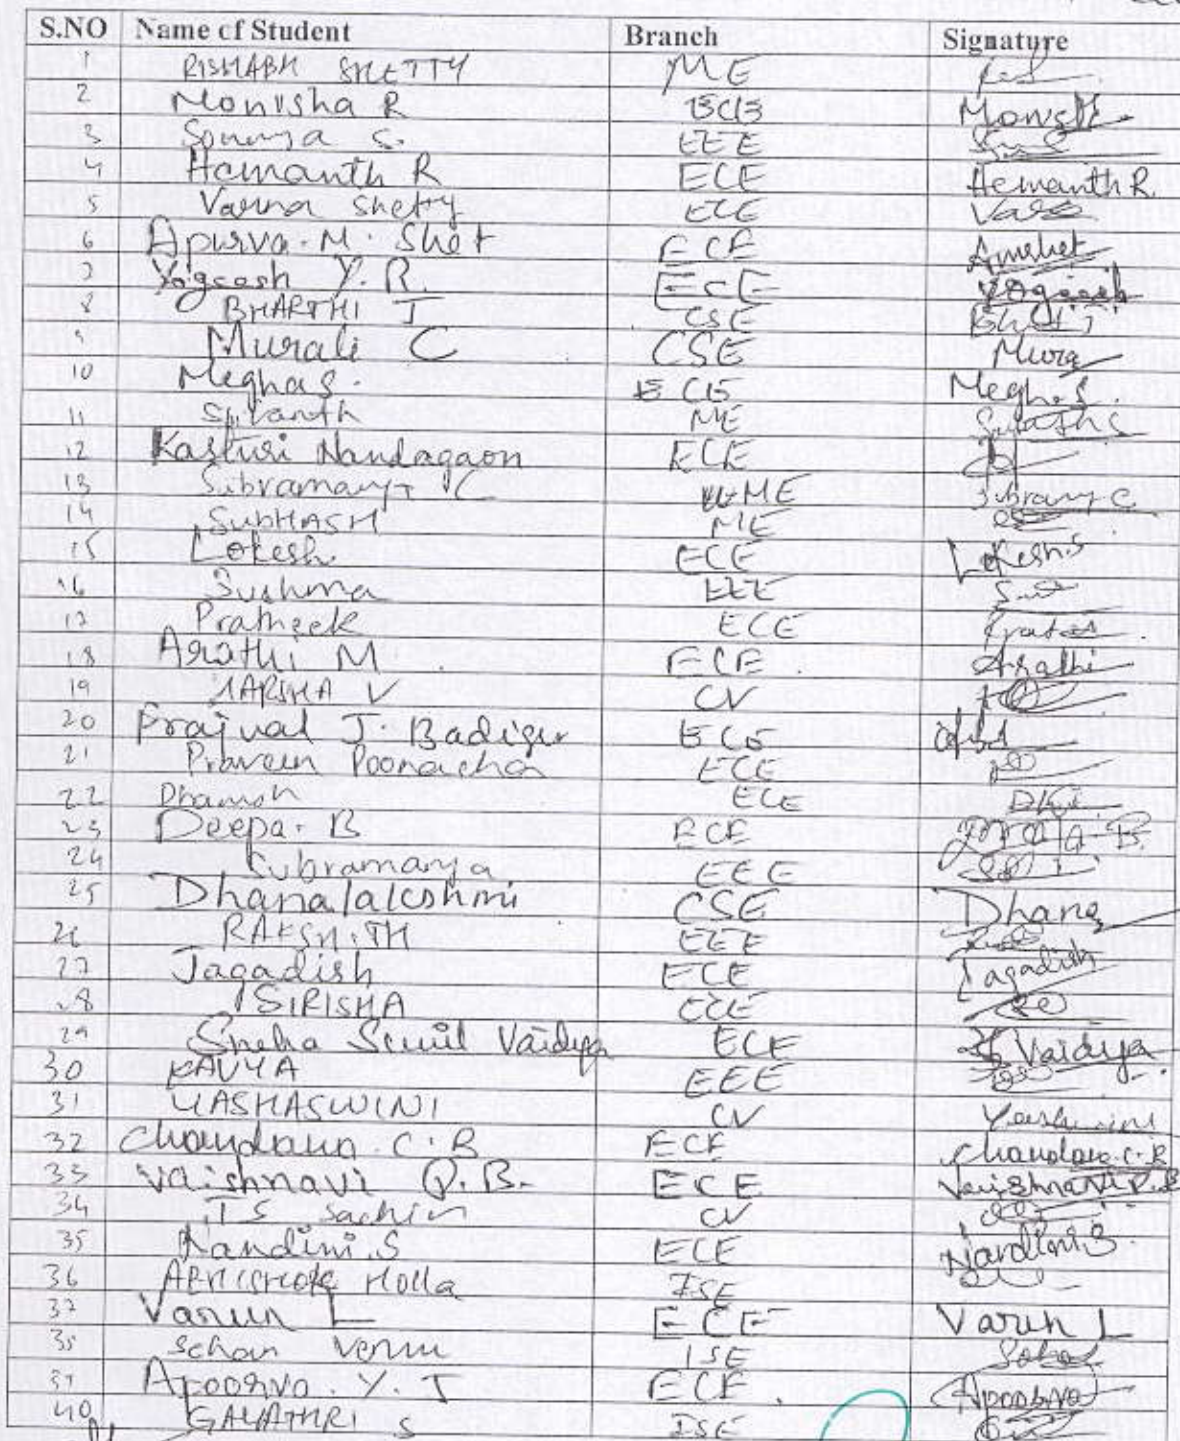 S.NO Name of Student Branch Signature
1 RISHABH SHETTY ME
2 Monisha R ECE
3 Soumya S. EEE
4 Hemanth R ECE Hemanth R.
5 Varna Shetty ECE
6 Apurva. M. Shet ECE Amshet
7 Yogeesh Y. R. ECE Yogeesh
8 BHARTHI J CSE
9 Murali C CSE Mura
10 Megha S. ECE Megh.S.
11 ME
12 Kasturi Nandagaon ECE
13 Subramanya C ME
14 SUBHASH ME
15 Lokesh ECE Lokesh.S
16 Sushma EEE
17 Pratheek ECE
18 Arathi M ECE Arathi
19 HARSHA V CV
20 Prajwal J. Badiger ECE
21 Praveen Poonacha ECE
22 ECE
23 Deepa. B ECE
24 Subramanya EEE
25 Dhanalakshmi CSE Dhana
26 RAKSHITH EEE
27 Jagadish ECE Jagadish
28 SIRISHA ECE
29 Sneha Sunil Vaidya ECE Vaidya
30 KAVYA EEE
31 YASHASWINI CV
32 Chandana. C. R ECE Chandana.C.R
33 Vaishnavi P. B. ECE Vaishnavi P.B
34 T S Sachin CV
35 Nandini.S ECE Nandini.S
36 ABHISHEK Holla ISE
37 Varun L ECE Varun L
38 ISE
39 Apoorva. Y. J ECE Apoorva
40 GAYATHRI S ISE